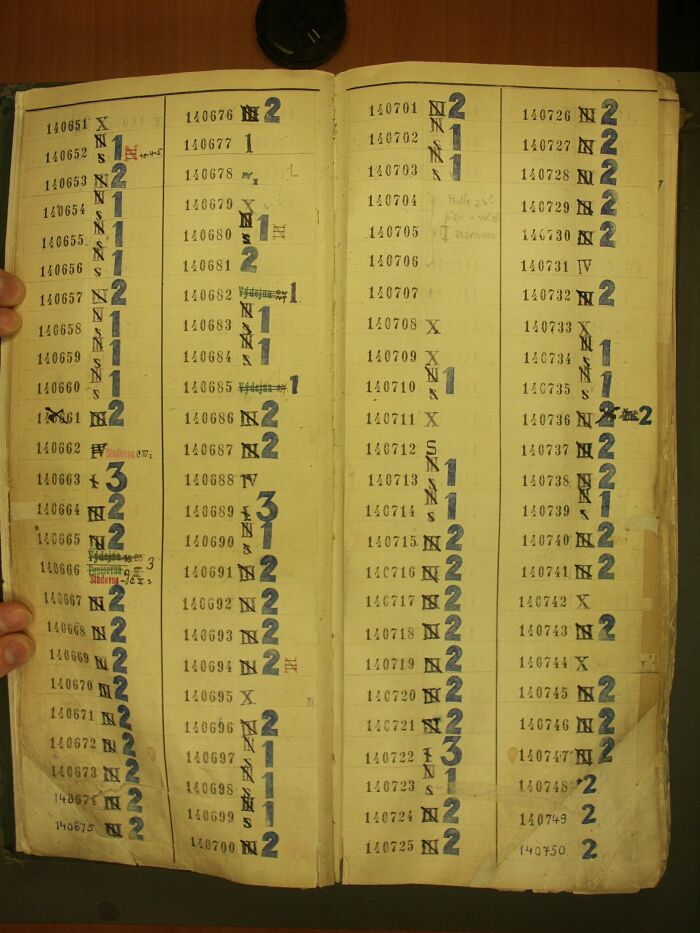 140651 X
140652 N s 1 IV
140653 N 2
140654 N s 1
140655 N s 1
140656 N s 1
140657 N 2
140658 N s 1
140659 N s 1
140660 N s 1
140661 N 2
140662 IV Sbdorna
140663 t 3
140664 N 2
140665 N 2
Výdejna
140666 3
Sbdorna
140667 N 2
140668 N 2
140669 N 2
140670 N 2
140671 N 2
140672 N 2
140673 N 2
140674 N 2
140675 N 2
140676 N 2
140677 1
140678 L
140679 X
140680 N s 1 IV
140681 2
140682 Výdejna 1
140683 N s 1
140684 N s 1
140685 Výdejna 1
140686 N 2
140687 N 2
140688 IV
140689 t 3
140690 N s 1
140691 N 2
140692 N 2
140693 N 2
140694 N 2 IV
140695 X
140696 N 2
140697 N s 1
140698 N s 1
140699 N s 1
140700 N 2
140701 N 2
140702 N s 1
140703 N s 1
140704
140705 I
140706
140707
140708 X
140709 X
140710 N s 1
140711 X
140712 S
140713 N s 1
140714 N s 1
140715 N 2
140716 N 2
140717 N 2
140718 N 2
140719 N 2
140720 N 2
140721 N 2
140722 t 3
140723 N s 1
140724 N 2
140725 N 2
140726 N 2
140727 N 2
140728 N 2
140729 N 2
140730 N 2
140731 IV
140732 N 2
140733 X
140734 N s 1
140735 N s 1
140736 N 2 2
140737 N 2
140738 N 2
140739 N s 1
140740 N 2
140741 N 2
140742 X
140743 N 2
140744 X
140745 N 2
140746 N 2
140747 N 2
140748 2
140749 2
140750 2